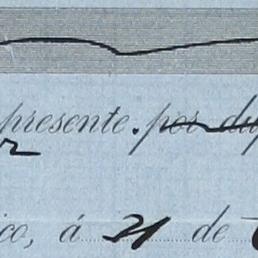 presente. por du
ico, á 21 de